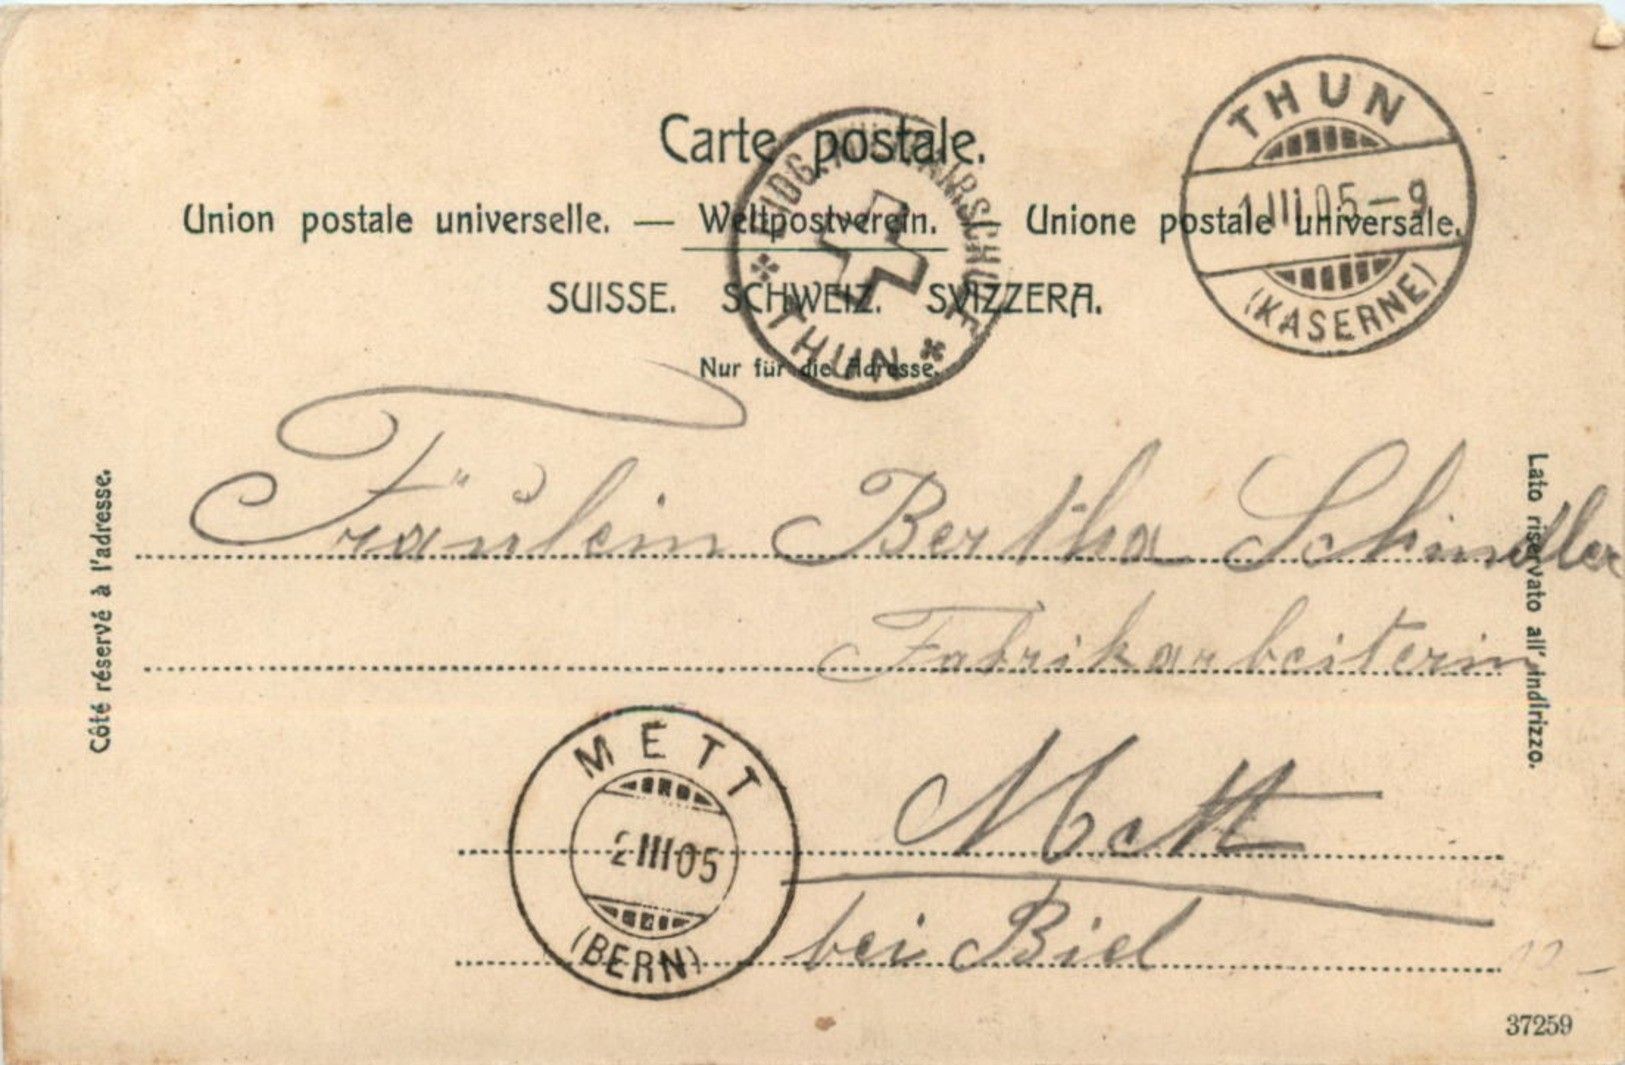 Carte postale.
Union postale universelle. — Weltpostverein. — Unione postale universale.
SUISSE. SCHWEIZ. SVIZZERA.
Nur für die Adresse.
THUN
1 III 05 – 9
(KASERNE)
EIDG.
THUN
Côté réservé à l'adresse.
Fräulein Bertha Schindler
Fabrikarbeiterin
Mett
bei Biel
METT
2 III 05
(BERN)
Lato riservato all'indirizzo.
37259